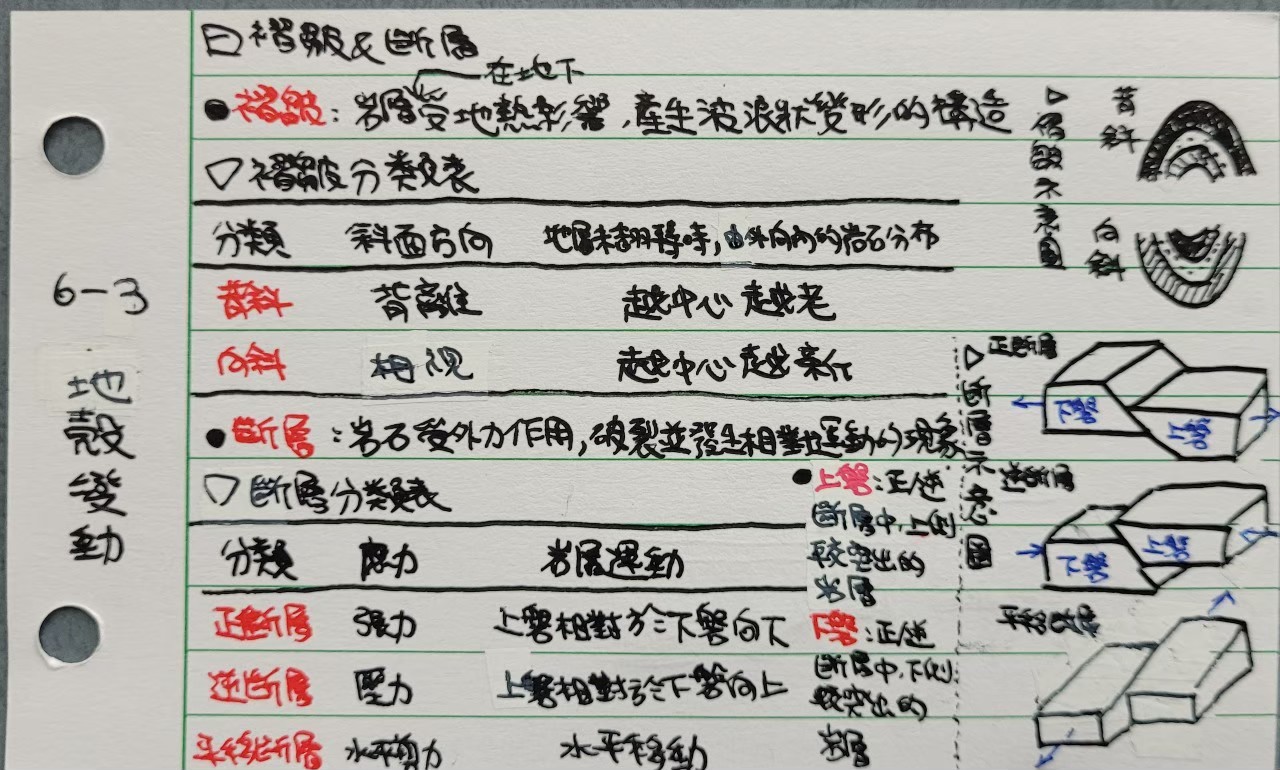 6-3
地殼變動
褶皺&斷層
在地下
●褶皺:岩層受地熱影響,產生波浪狀變形的構造
▽褶皺分類表
分類 斜面方向 地層未翻轉時,由外向內的岩石分布
背斜 背離 越中心越老
向斜 相視 越中心越新
●斷層:岩石受外力作用,破裂並發生相對運動的現象
▽斷層分類表
分類 應力 岩層運動
正斷層 張力 上盤相對於下盤向下
逆斷層 壓力 上盤相對於下盤向上
平移斷層 水平剪力 水平移動
●上盤:正逆
斷層中,上側
較突出的
岩層
下盤:正逆
斷層中,下側
較突出的
岩層
▷褶皺示意圖
背斜
向斜
▷斷層示意圖
正斷層
下盤
上盤
逆斷層
下盤
上盤
平移斷層